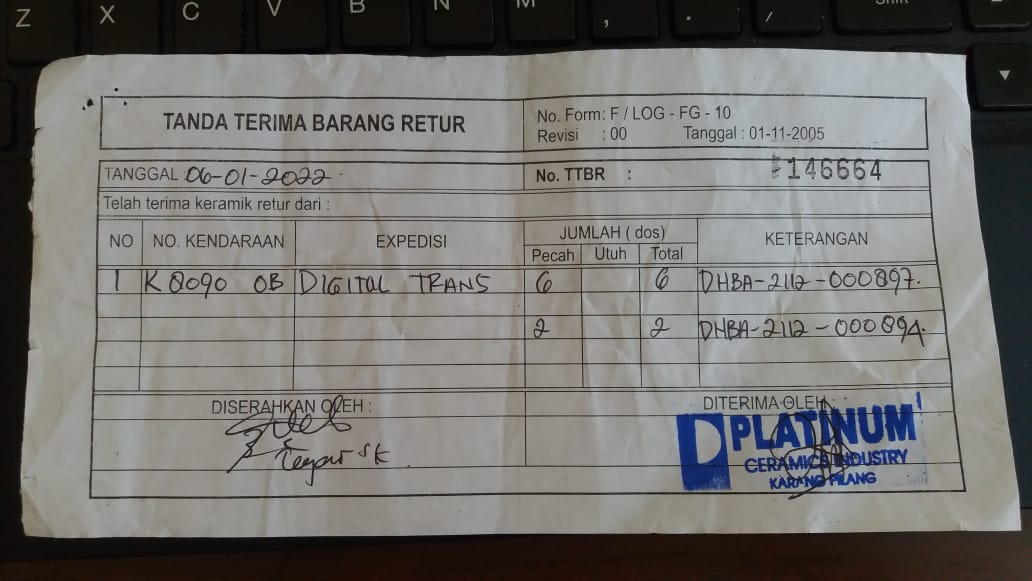 TANDA TERIMA BARANG RETUR
No. Form: F / LOG - FG - 10
Revisi : 00 Tanggal : 01-11-2005
TANGGAL : 06-01-2022
No. TTBR : 146664
Telah terima keramik retur dari :
NO NO. KENDARAAN EXPEDISI JUMLAH ( dos) KETERANGAN
Pecah Utuh Total
1 K 8090 OB DIGITAL TRANS 6 6 DHBA-2112-000897.
2 2 DHBA-2112-000894.
DISERAHKAN OLEH :
DITERIMA OLEH :
PLATINUM
CERAMICS INDUSTRY
KARANG PILANG